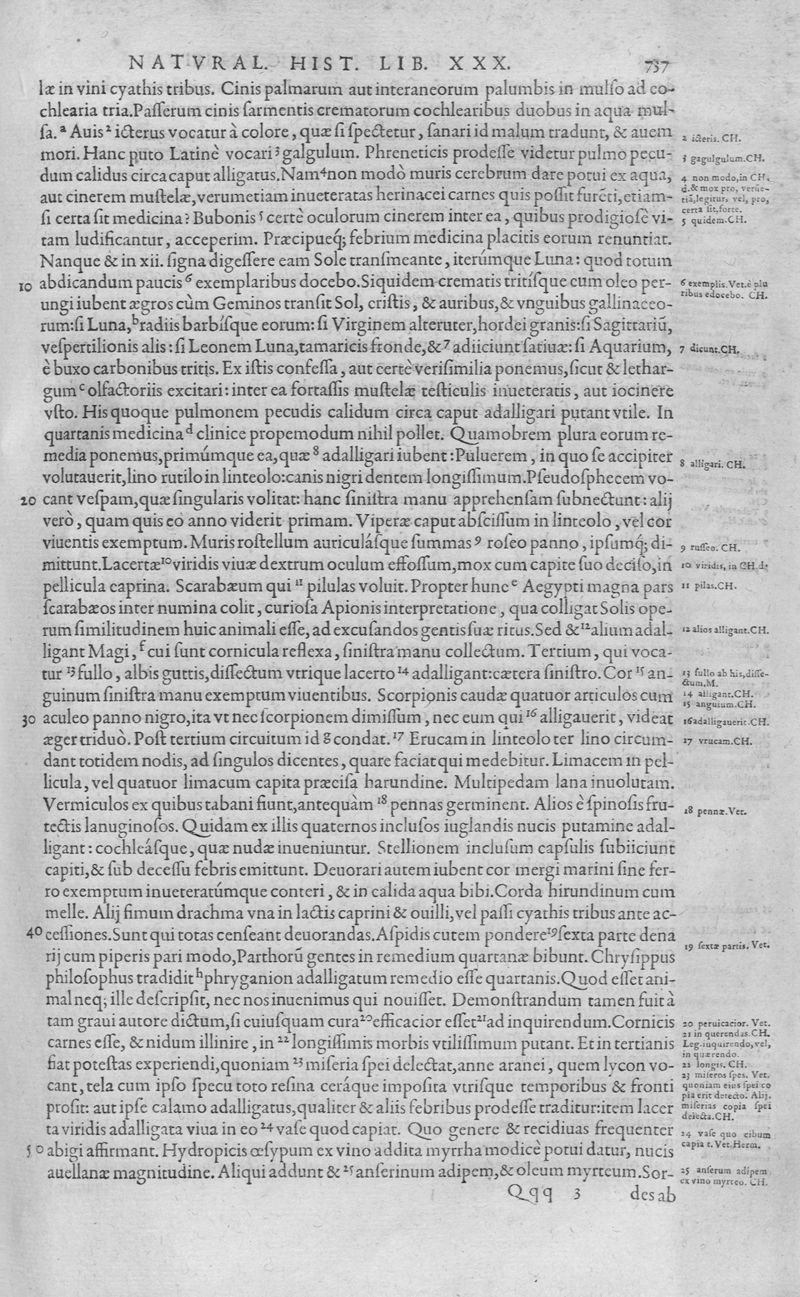 NATVRAL. HIST. LIB. XXX. 737
læ in vini cyathis tribus. Cinis palmarum aut interaneorum palumbis in mulſo ad co-
chlearia tria. Paſſerum cinis ſarmentis crematorum cochlearibus duobus in aqua mul-
ſa. ª Auis ² icterus vocatur à colore, quæ ſi ſpectetur, ſanari id malum tradunt, & auem
mori. Hanc puto Latinè vocari ³ galgulum. Phreneticis prodeſſe videtur pulmo pecu-
dum calidus circa caput alligatus. Nam ⁴ non modò muris cerebrum dare potui ex aqua,
aut cinerem muſtelæ, verumetiam inueteratas herinacei carnes quis poſſit furēti, etiam-
ſi certa ſit medicina? Bubonis ⁵ certè oculorum cinerem inter ea, quibus prodigioſè vi-
tam ludificantur, acceperim. Præcipueq́; febrium medicina placitis eorum renuntiat.
Nanque & in xii. ſigna digeſſere eam Sole tranſmeante, iterúmque Luna: quod totum
10 abdicandum paucis ⁶ exemplaribus docebo. Siquidem crematis tritiſque cum oleo per-
ungi iubent ægros cùm Geminos tranſit Sol, criſtis, & auribus, & vnguibus gallinaceo-
rum: ſi Luna, ᵇ radiis barbíſque eorum: ſi Virginem alteruter, hordei granis: ſi Sagittariū,
veſpertilionis alis: ſi Leonem Luna, tamaricis fronde, & ⁷ adiiciunt ſatiuæ: ſi Aquarium,
è buxo carbonibus tritis. Ex iſtis confeſſa, aut certè veriſimilia ponemus, ſicut & lethar-
gum ᶜ olfactoriis excitari: inter ea fortaſſis muſtelæ teſticulis inueteratis, aut iocinere
vſto. His quoque pulmonem pecudis calidum circa caput adalligari putant vtile. In
quartanis medicina ᵈ clinice propemodum nihil pollet. Quamobrem plura eorum re-
media ponemus, primúmque ea, quæ ⁸ adalligari iubent: Puluerem, in quo ſe accipiter
volutauerit, lino rutilo in linteolo: canis nigri dentem longiſſimum. Pſeudoſphecem vo-
20 cant veſpam, quæ ſingularis volitat: hanc ſiniſtra manu apprehenſam ſubnectunt: alij
verò, quam quis eo anno viderit primam. Viperæ caput abſciſſum in linteolo, vel cor
viuentis exemptum. Muris roſtellum auriculáſque ſummas ⁹ roſeo panno, ipſumq́; di-
mittunt. Lacertæ ¹⁰ viridis viuæ dextrum oculum effoſſum, mox cum capite ſuo deciſo, in
pellicula caprina. Scarabæum qui ¹¹ pilulas voluit. Propter hunc ᵉ Aegypti magna pars
ſcarabæos inter numina colit, curioſa Apionis interpretatione, qua colligat Solis ope-
rum ſimilitudinem huic animali eſſe, ad excuſandos gentis ſuæ ritus. Sed & ¹² alium adal-
ligant Magi, ᶠ cui ſunt cornicula reflexa, ſiniſtra manu collectum. Tertium, qui voca-
tur ¹³ fullo, albis guttis, diſſectum vtrique lacerto ¹⁴ adalligant: cætera ſiniſtro. Cor ¹⁵ an-
guinum ſiniſtra manu exemptum viuentibus. Scorpionis caudæ quatuor articulos cum
30 aculeo panno nigro, ita vt nec ſcorpionem dimiſſum, nec eum qui ¹⁶ alligauerit, videat
æger triduò. Poſt tertium circuitum id ᵍ condat. ¹⁷ Erucam in linteolo ter lino circum-
dant totidem nodis, ad ſingulos dicentes, quare faciat qui medebitur. Limacem in pel-
licula, vel quatuor limacum capita præciſa harundine. Multipedam lana inuolutam.
Vermiculos ex quibus tabani fiunt, antequàm ¹⁸ pennas germinent. Alios è ſpinoſis fru-
tectis lanuginoſos. Quidam ex illis quaternos incluſos iuglandis nucis putamine adal-
ligant: cochleáſque, quæ nudæ inueniuntur. Stellionem incluſum capſulis ſubiiciunt
capiti, & ſub deceſſu febris emittunt. Deuorari autem iubent cor mergi marini ſine fer-
ro exemptum inueteratúmque conteri, & in calida aqua bibi. Corda hirundinum cum
melle. Alij fimum drachma vna in lactis caprini & ouilli, vel paſſi cyathis tribus ante ac-
40 ceſſiones. Sunt qui totas cenſeant deuorandas. Aſpidis cutem pondere ¹⁹ ſexta parte dena
rij cum piperis pari modo, Parthorū gentes in remedium quartanæ bibunt. Chryſippus
philoſophus tradidit ʰ phryganion adalligatum remedio eſſe quartanis. Quod eſſet ani-
mal neq; ille deſcripſit, nec nos inuenimus qui nouiſſet. Demonſtrandum tamen fuit à
tam graui autore dictum, ſi cuiuſquam cura ²⁰ efficacior eſſet ²¹ ad inquirendum. Cornicis
carnes eſſe, & nidum illinire, in ²² longiſſimis morbis vtiliſſimum putant. Et in tertianis
fiat poteſtas experiendi, quoniam ²³ miſeria ſpei delectat, anne aranei, quem lycon vo-
cant, tela cum ipſo ſpecu toto reſina ceráque impoſita vtriſque temporibus & fronti
proſit: aut ipſe calamo adalligatus, qualiter & aliis febribus prodeſſe traditur: item lacer
ta viridis adalligata viua in eo ²⁴ vaſe quod capiat. Quo genere & recidiuas frequenter
50 abigi affirmant. Hydropicis œſypum ex vino addita myrrha modicè potui datur, nucis
auellanæ magnitudine. Aliqui addunt & ²⁵ anſerinum adipem, & oleum myrteum. Sor-
Qqq 3 des ab
2 icteris. CH.
3 gagulgulum. CH.
4 non modo, in CH.
d. & mox pro, verúe-
tiā, legitur, vel, pro,
certa ſit, forte.
5 quidem. CH.
6 exemplis. Vet. è plu
ribus edocebo. CH.
7 dicunt. CH.
8 alligari. CH.
9 ruſſeo. CH.
10 viridis, in CH. d.
11 pilas. CH.
12 alios alligant. CH.
13 fullo ab his, diſſe-
ctum. M.
14 alligant. CH.
15 anguium. CH.
16 adalligauerit. CH.
17 vrucam. CH.
18 pennæ. Vet.
19 ſextæ partis. Vet.
20 peruicacior. Vet.
21 in querendas. CH.
Leg. inquirendo, vel,
in quærendo.
22 longis. CH.
23 miſeros ſpes. Vet.
quoniam eius ſpei co
pia erit detecto. Alij.
miſerias copia ſpei
delecta. CH.
24 vaſe quo eibum
capiat. Vet. Herm.
25 anſerum adipem
ex vino myrteo. CH.